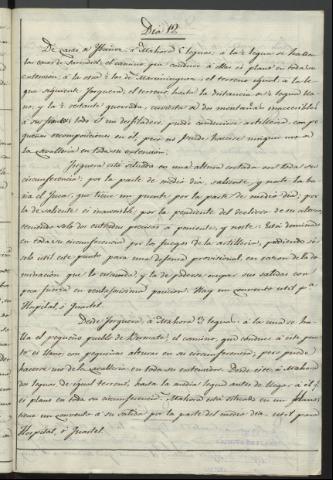 Dia 12.
De casas de Ybañez, á Mahora 5 leguas, á la ½ legua se hallan
las casas de Serradiel, el camino que conduce á ellas es plano en toda su
extension, á la otra ½ las de Mariminguez, el terreno igual, á la le-
gua siguiente Jorquera, el terreno hasta la distancia de ½ legua lla-
no, y la ½ restante quebrada, cuestas y dos montañas inaccesibles
á su frente todo es un desfiladero, puede conducirse artilleria con pe-
queñas recomposiciones en el, pero no puede hacerse ningun uso de
la Cavalleria en toda su extension.
Jorquera está situada en una altura cortada en toda su
circunferencia; por la parte de medio dia, saliente, y norte la ba-
ña el Jucar, que tiene un puente por la parte de medio dia, por
la de saliente es inaccesible, por la pendiente del declive de su altura
teniendo solo dos entradas precisas á poniente, y norte. Está dominada
en toda su circunferencia por los fuegos de la artilleria, pudiendo si-
do util este punto para una defensa provisional en razon de la do-
minacion que le circunda, y la de poderse ocupar sus salidas con
poca fuerza en ventajosisima posicion. Hay un convento util pa.
Hospital, ó Quartel.
Desde Jorquera, á Mahora 3 leguas; á la una se ha-
lla el pequeño pueblo de Bormate, el camino, que conduce á este pun-
to es llano con pequeñas alturas en su circunferencia, pero puede
hacerse uso de la Cavalleria en toda su extension. Desde este, á Mahora
dos leguas de igual terreno, hasta la media legua antes de llegar á el q.
es plano en toda su circunferencia. Mahora está situada en un llano,
tiene un convento á su salida por la parte del medio dia, util para
Hospital, ó Quartel.